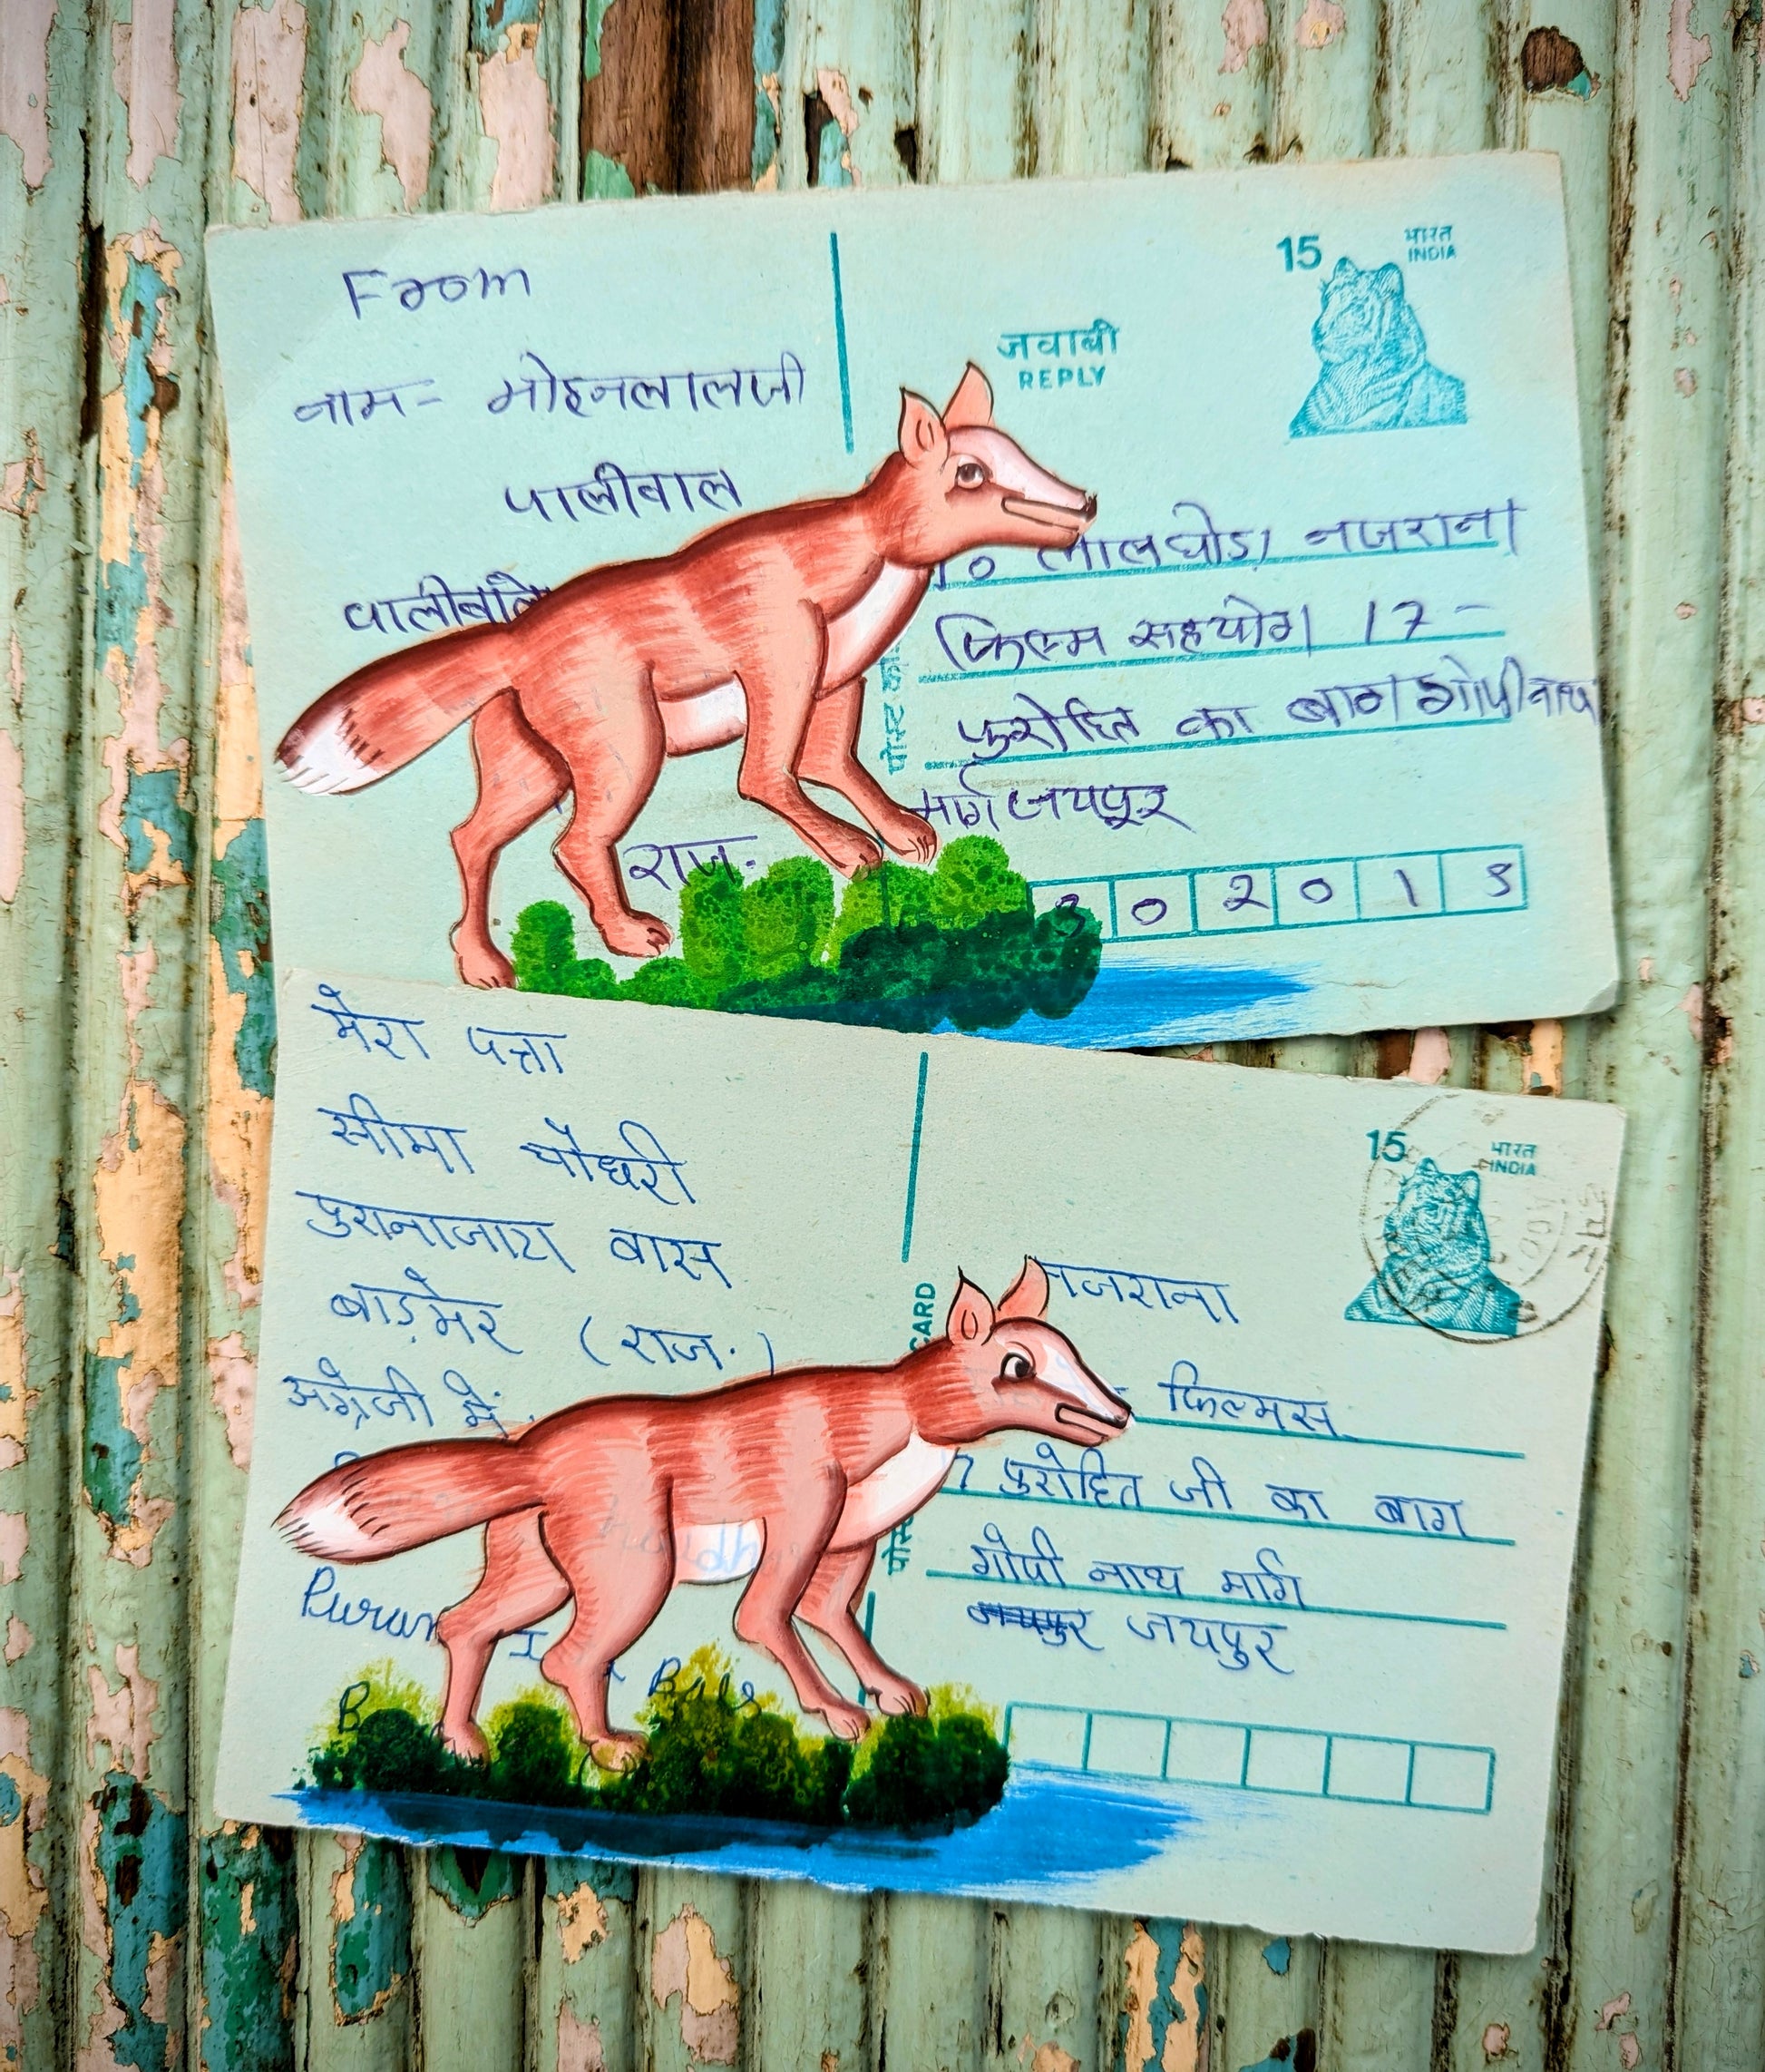 From
नाम- मोहनलालजी
पालीवाल
राज.
15 भारत
INDIA
जवाबी
REPLY
लालघोड़ा नजराना
फिल्म सहयोग 17-
पुरोहित का बाग गोपीनाथ
मार्ग जयपुर
0 2 0 1 5
मेरा पत्ता
सीमा चौधरी
पुरानाजाटा वास
बाड़मेर (राज.)
अंग्रेजी में
15 भारत
INDIA
CARD
नजराना
फिल्मस
7 पुरोहित जी का बाग
गोपी नाथ मार्ग
जयपुर